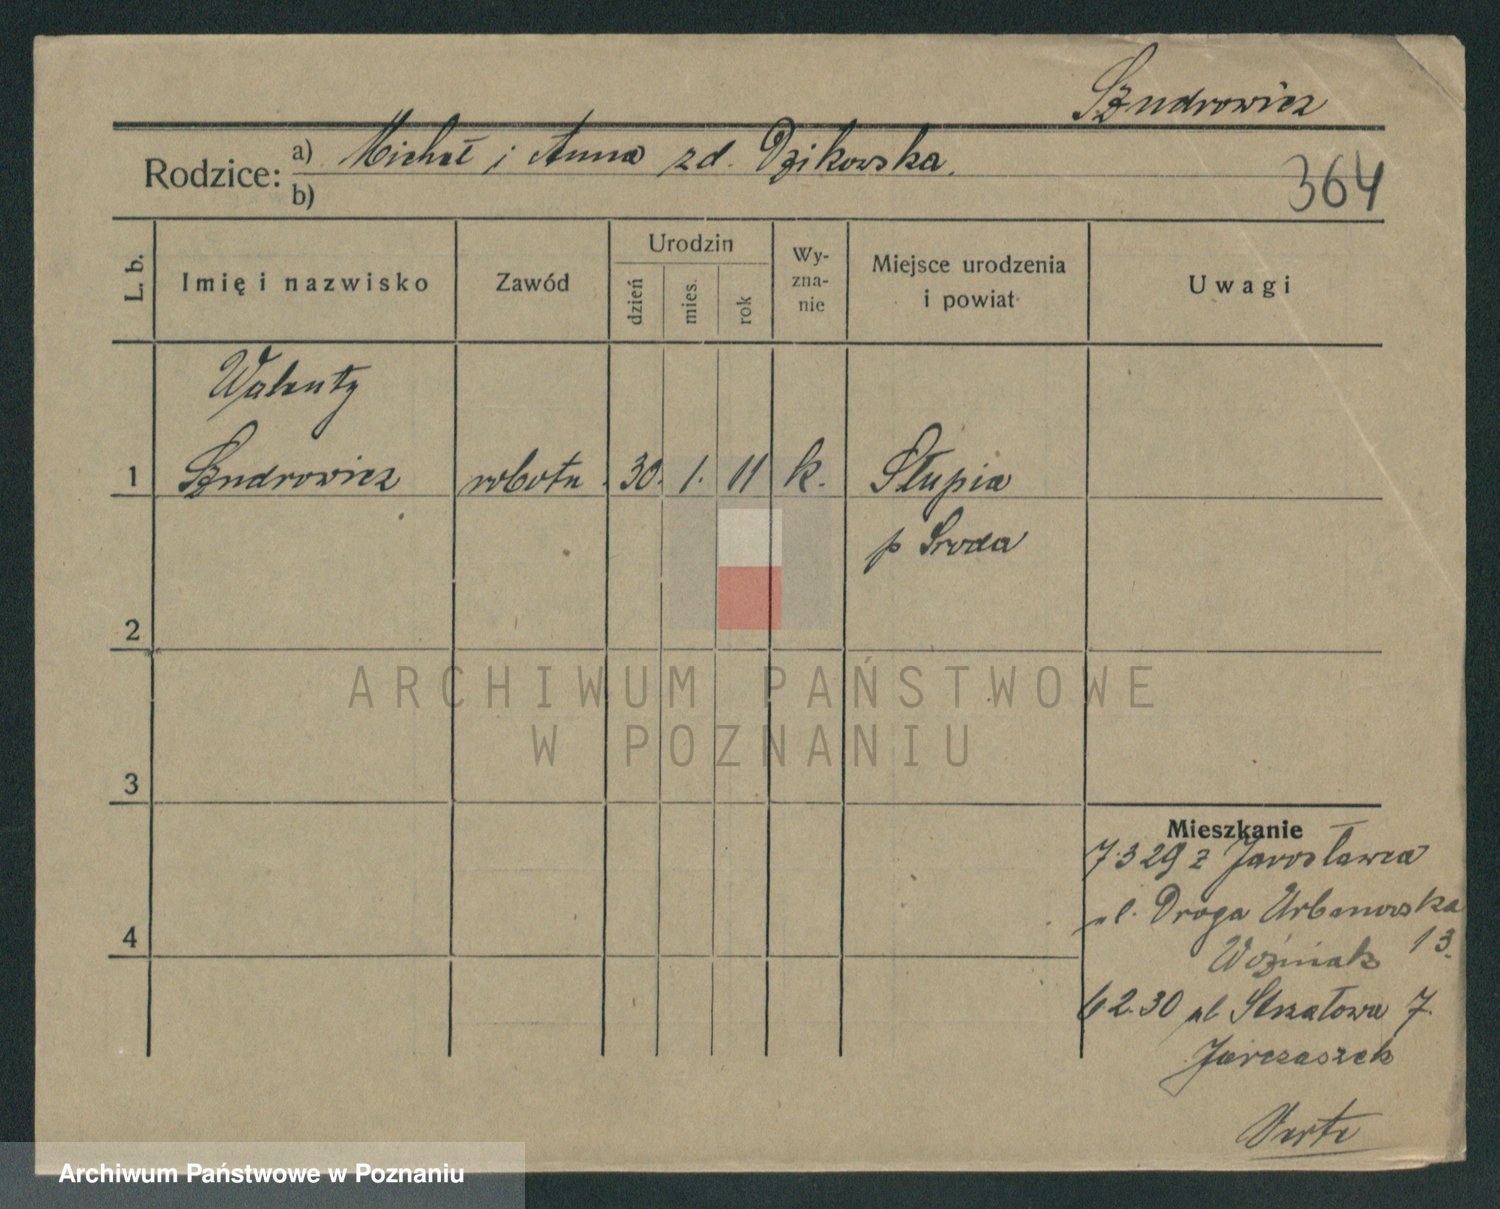 Szudrowicz
Rodzice: a) Michał i Anna zd. Dzikowska.
b)
364
L. b.
Imię i nazwisko
Zawód
Urodzin
dzień
mies.
rok
Wy-
zna-
nie
Miejsce urodzenia
i powiat
Uwagi
Walenty
1 Szudrowicz robotn. 30. 1. 11 k. Słupia
p Sroda
2
3
4
ARCHIWUM PAŃSTWOWE
W POZNANIU
Mieszkanie
7.3 29 z Jarosławca
ul. Droga Urbanowska
Woźniak 13.
6 2.30 ul Strzałowa 7.
Jarczaszek
Verte
Archiwum Państwowe w Poznaniu